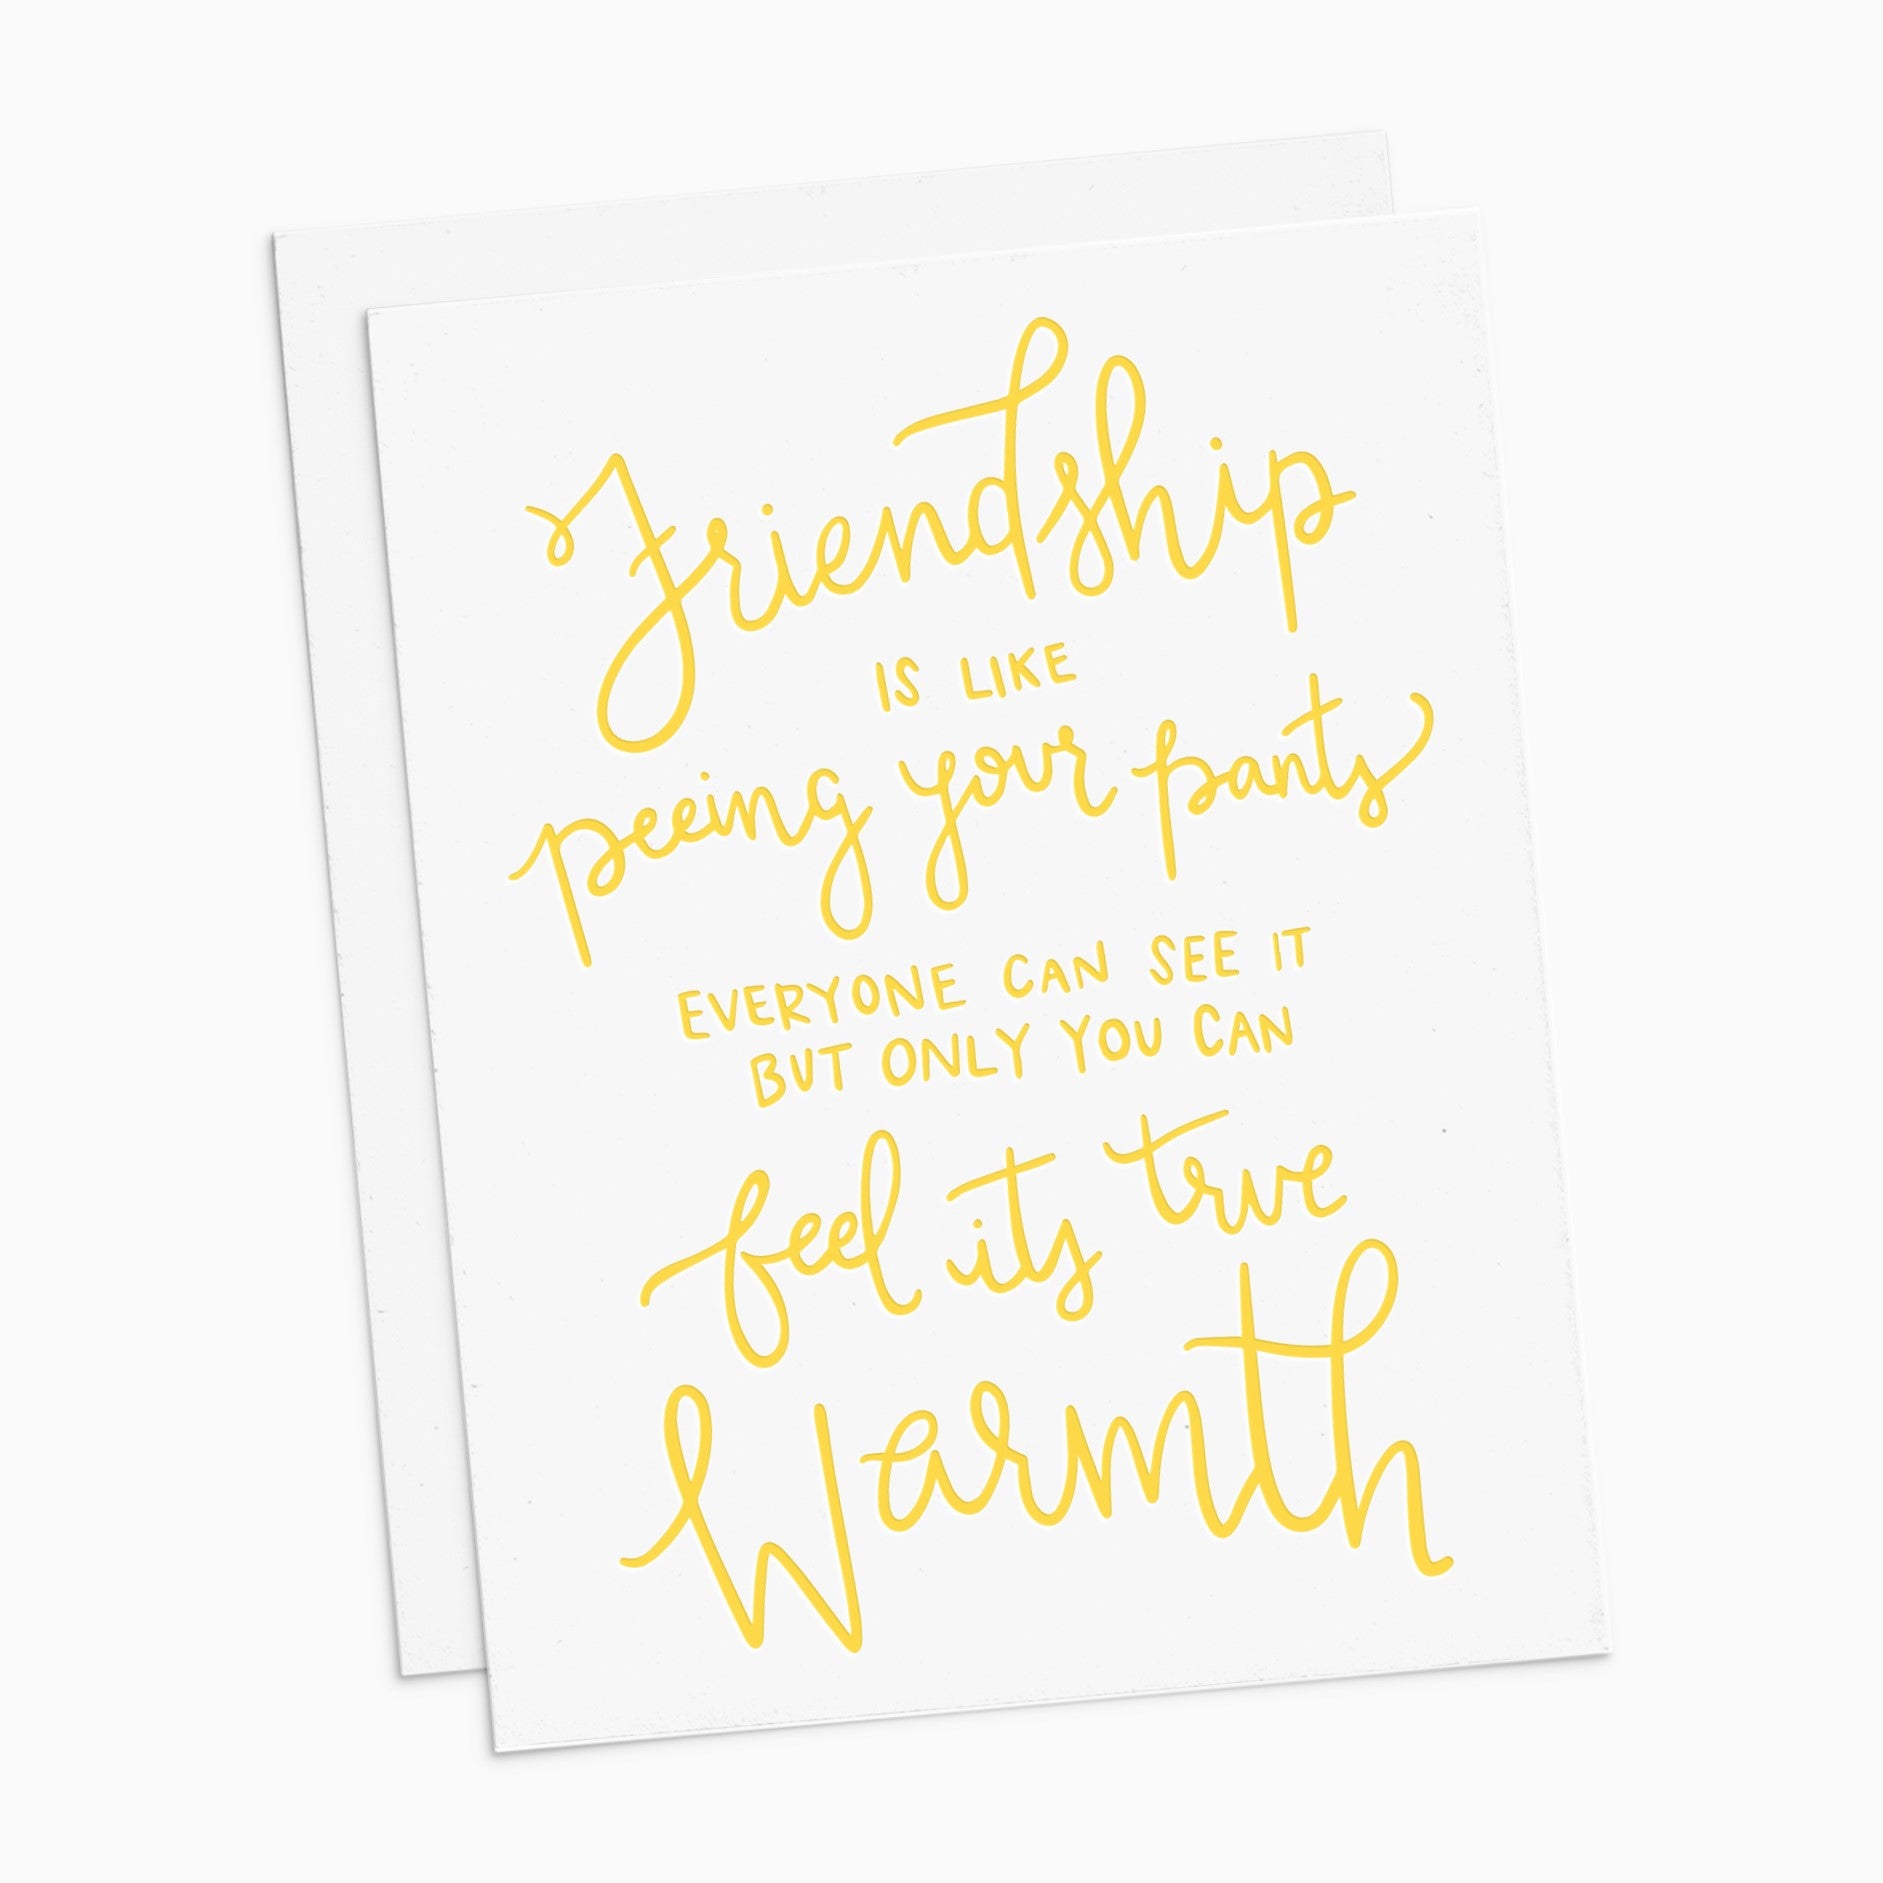 Friendship
IS LIKE
peeing your pants
EVERYONE CAN SEE IT
BUT ONLY YOU CAN
feel its true
Warmth